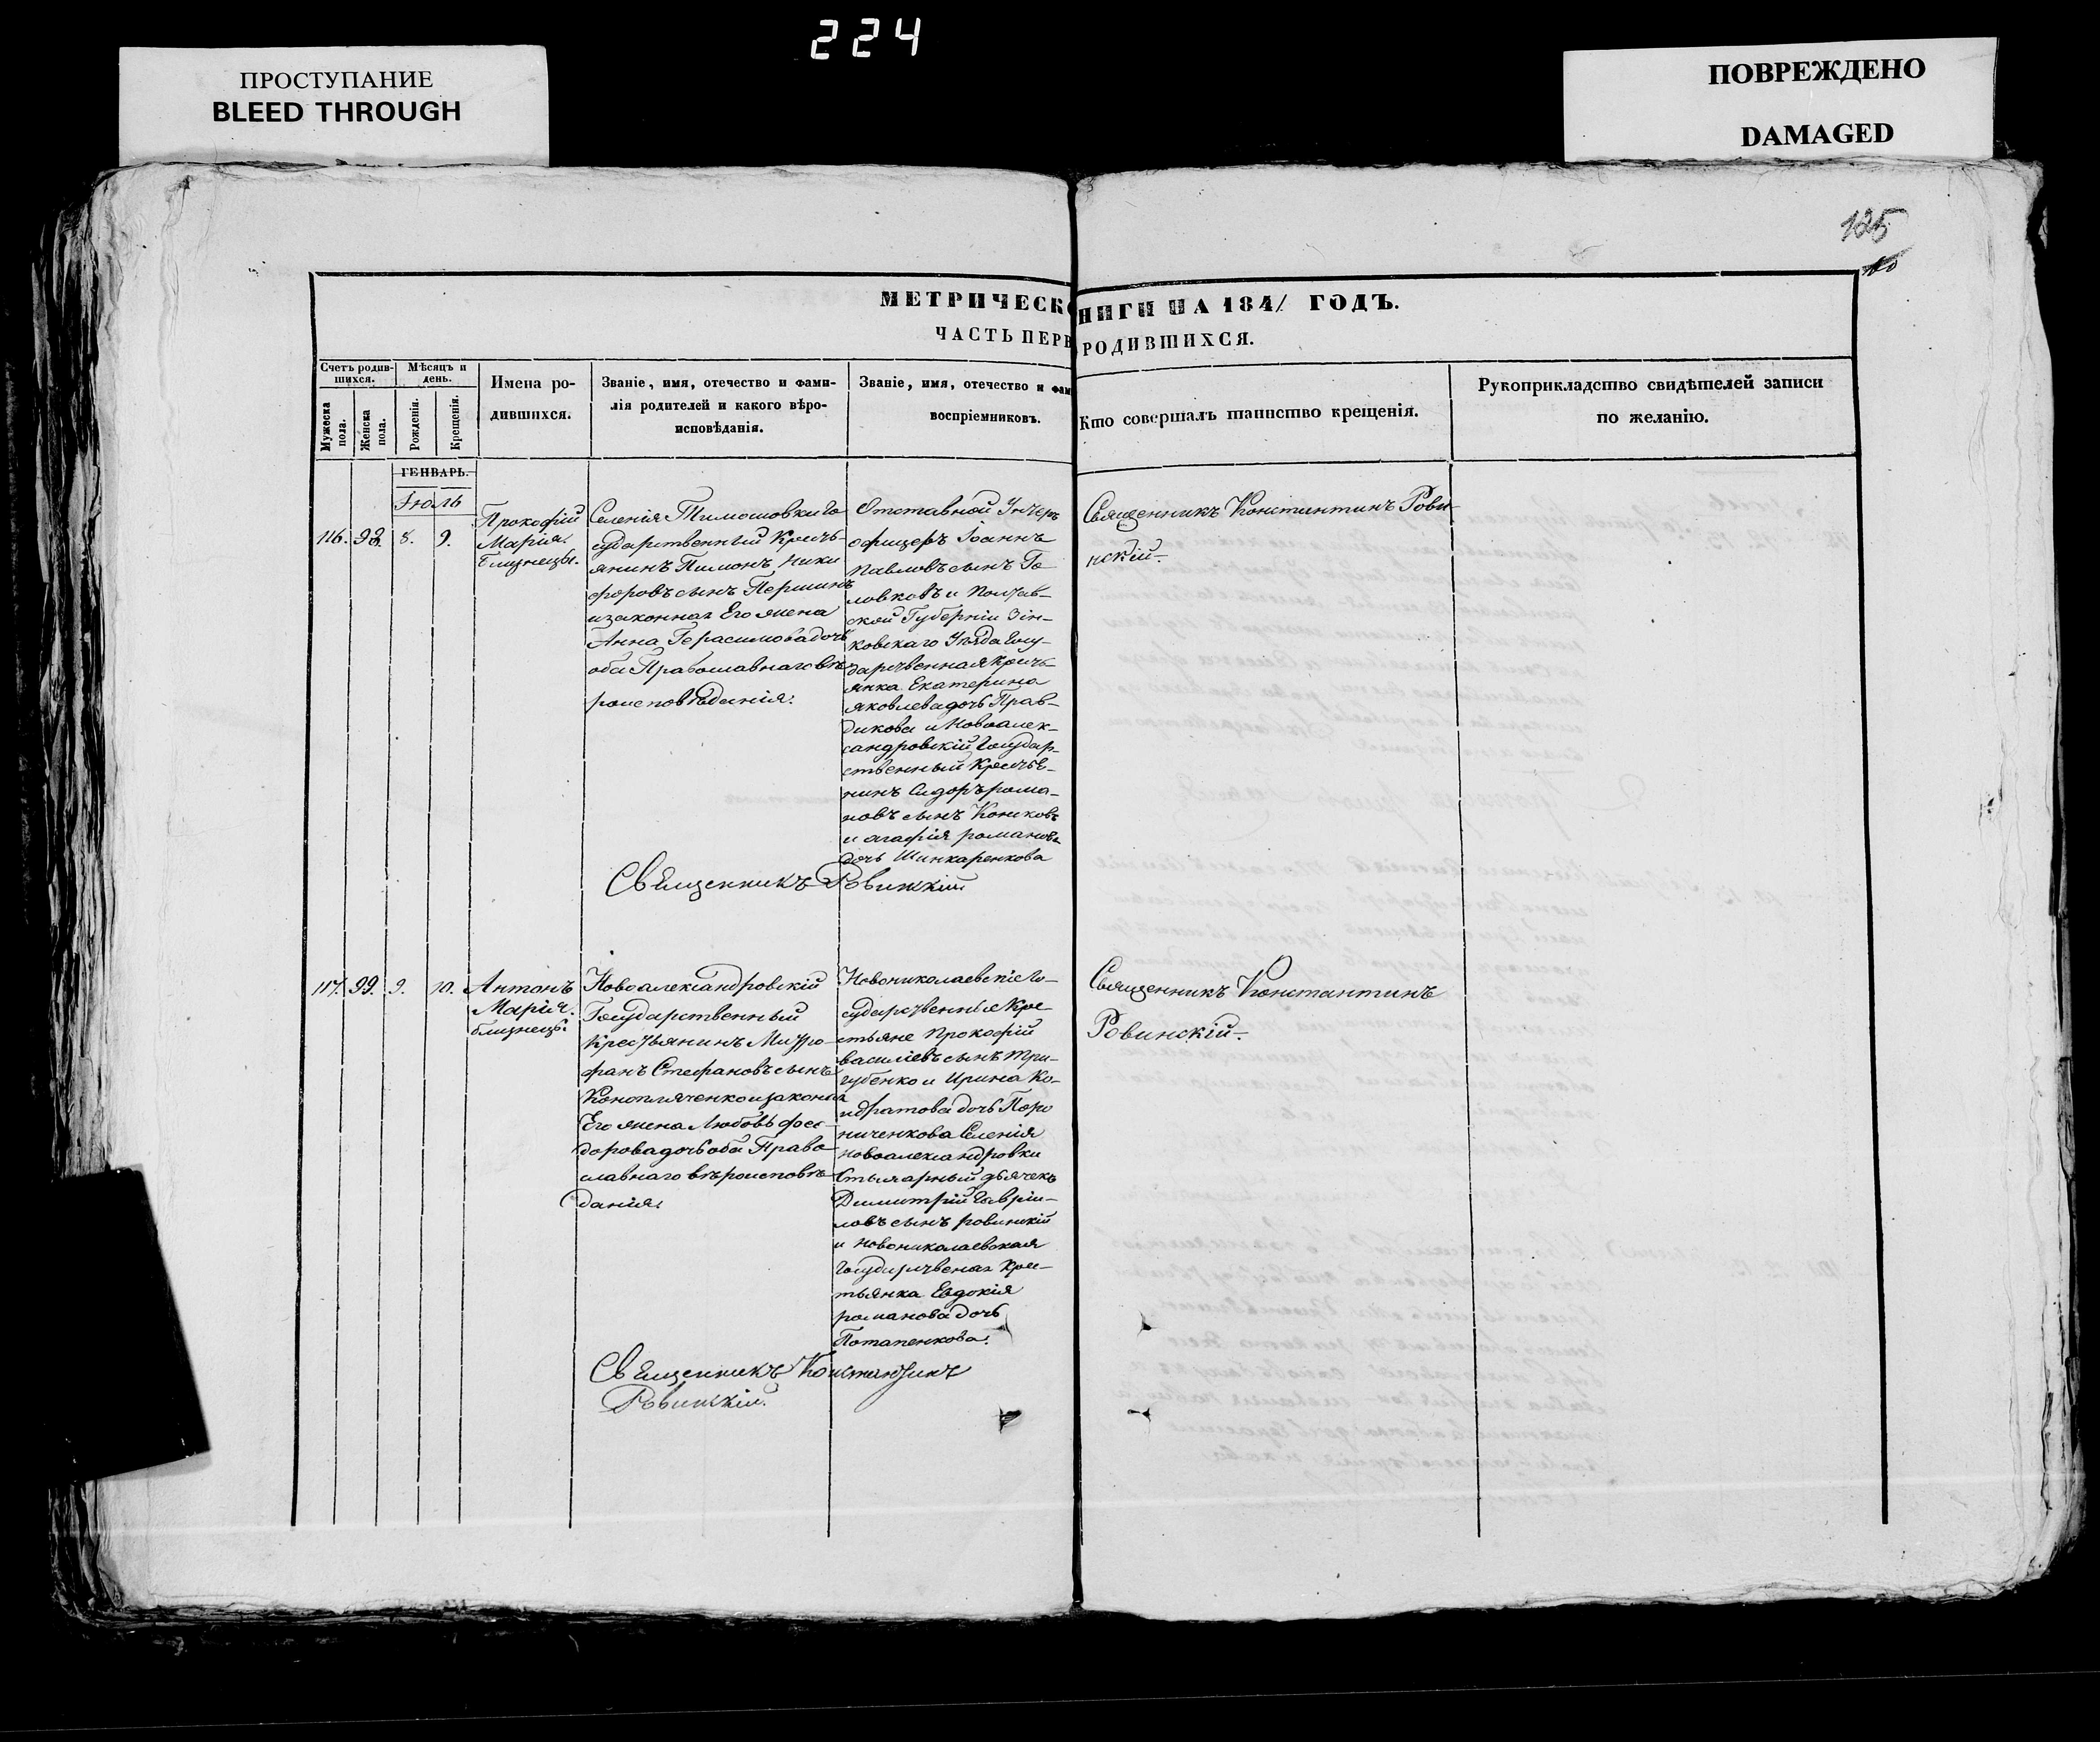 224
ПРОСТУПАНИЕ
BLEED THROUGH
ПОВРЕЖДЕНО
DAMAGED
125
МЕТРИЧЕСКО
НИГИ НА 1841 ГОДЪ.
ЧАСТЬ ПЕРВ
РОДИВШИХСЯ.
Счетъ родив-
шихся.
Мужеска
пола.
Женска
пола.
Мѣсяцъ и
день.
Рожденія.
Крещенія.
Имена ро-
дившихся.
Званіе, имя, отечество и фами-
лія родителей и какого вѣро-
исповѣданія.
Званіе, имя, отечество и фам
воспріемниковъ.
Кто совершалъ таинство крещенія.
Рукоприкладство свидѣтелей записи
по желанію.
ГЕНВАРЬ.
Іюль
116. 98. 8. 9.
Прокофій
Марія
близнецы.
Селенія Тимошовки Го
сударственный Кресть-
янинъ Пимонъ Ники
форовъ сынъ Першинъ
и законная Его жена
Анна Герасимова дочь
оба Православнаго вѣ-
роисповѣданія.
Отставной Унтеръ
офицеръ Іоаннъ
Павловъ сынъ Го
ловковъ и Полтав-
ской Губерніи Зін-
ковскаго Уѣзда Госу-
дарственная Кресть-
янка Екатерина
Яковлева дочь Прав-
дикова и Новоалек-
сандровскій Государ-
ственный Крестья-
нинъ Сидоръ рома-
новъ сынъ Кониковъ
и агафія романова
дочь Шинкаренкова
Священникъ Константинъ Рови-
нскій.
Священникъ Ровинскій
117. 99. 9. 10.
Антонъ
Марія.
близнецы.
Новоалександровскій
Государственный
Крестьянинъ Митро-
фанъ Стефановъ сынъ
Конопляченко и законная
Его жена Любовь фео-
дорова дочь оба Право
славнаго вѣроисповѣ-
данія.
Новониколаевскіе Го-
сударственные Кре-
стьяне Прокофій
василіевъ сынъ Три-
губенко и Ирина Ко-
ндратова дочь
Селенія
новоалександровки
дьячекъ
Димитрій Гавріи-
ловъ сынъ ровинскій
и новониколаевская
Государственая Крес-
тьянка Евдокія
романова дочь
Потапенкова.
Священникъ Константинъ
Ровинскій.
Священникъ Константинъ
Ровинскій.